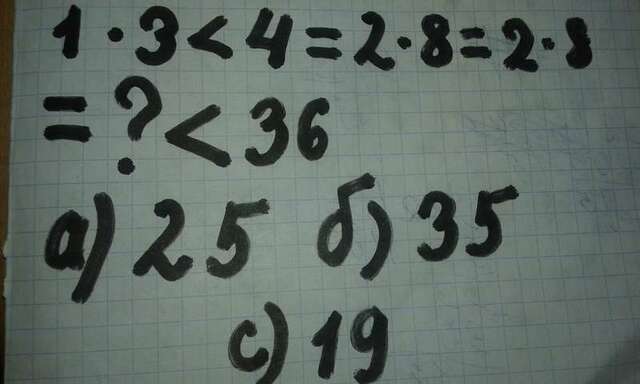 1·3<4=2·8=2·8
=?<36
а) 25 б) 35
с) 19